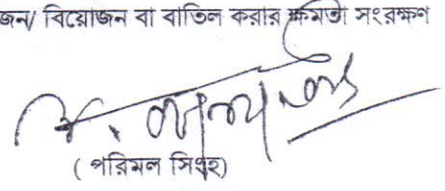 জন/ বিয়োজন বা বাতিল করার ক্ষমতা সংরক্ষণ
( পরিমল সিংহ)